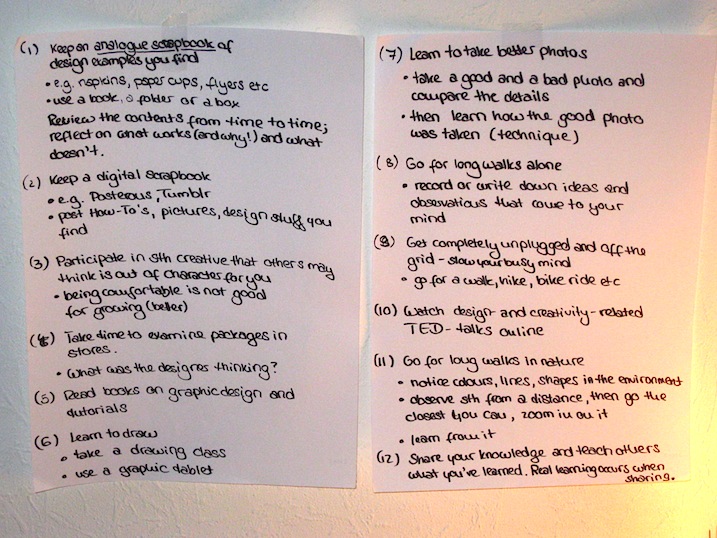 (1) Keep an analogue scrapbook of
design examples you find
• e.g. napkins, paper cups, flyers etc
• use a book, a folder or a box
Review the contents from time to time;
reflect on what works (and why!) and what
doesn't.
(2) Keep a digital scrapbook
• e.g. Posterous, Tumblr
• post How-To's, pictures, design stuff you
find
(3) Participate in sth creative that others may
think is out of character for you
• being comfortable is not good
for growing (better)
(4) Take time to examine packages in
stores.
• What was the designer thinking?
(5) Read books on graphic design and
tutorials
(6) Learn to draw
• take a drawing class
• use a graphic tablet
(7) Learn to take better photos
• take a good and a bad photo and
compare the details
• then learn how the good photo
was taken (technique)
(8) Go for long walks alone
• record or write down ideas and
observations that come to your
mind
(9) Get completely unplugged and off the
grid - slow your busy mind
• go for a walk, hike, bike ride etc
(10) Watch design- and creativity-related
TED-talks online
(11) Go for long walks in nature
• notice colours, lines, shapes in the environment
• observe sth from a distance, then go the
closest you can, zoom in on it
• learn from it
(12) Share your knowledge and teach others
what you've learned. Real learning occurs when
sharing.